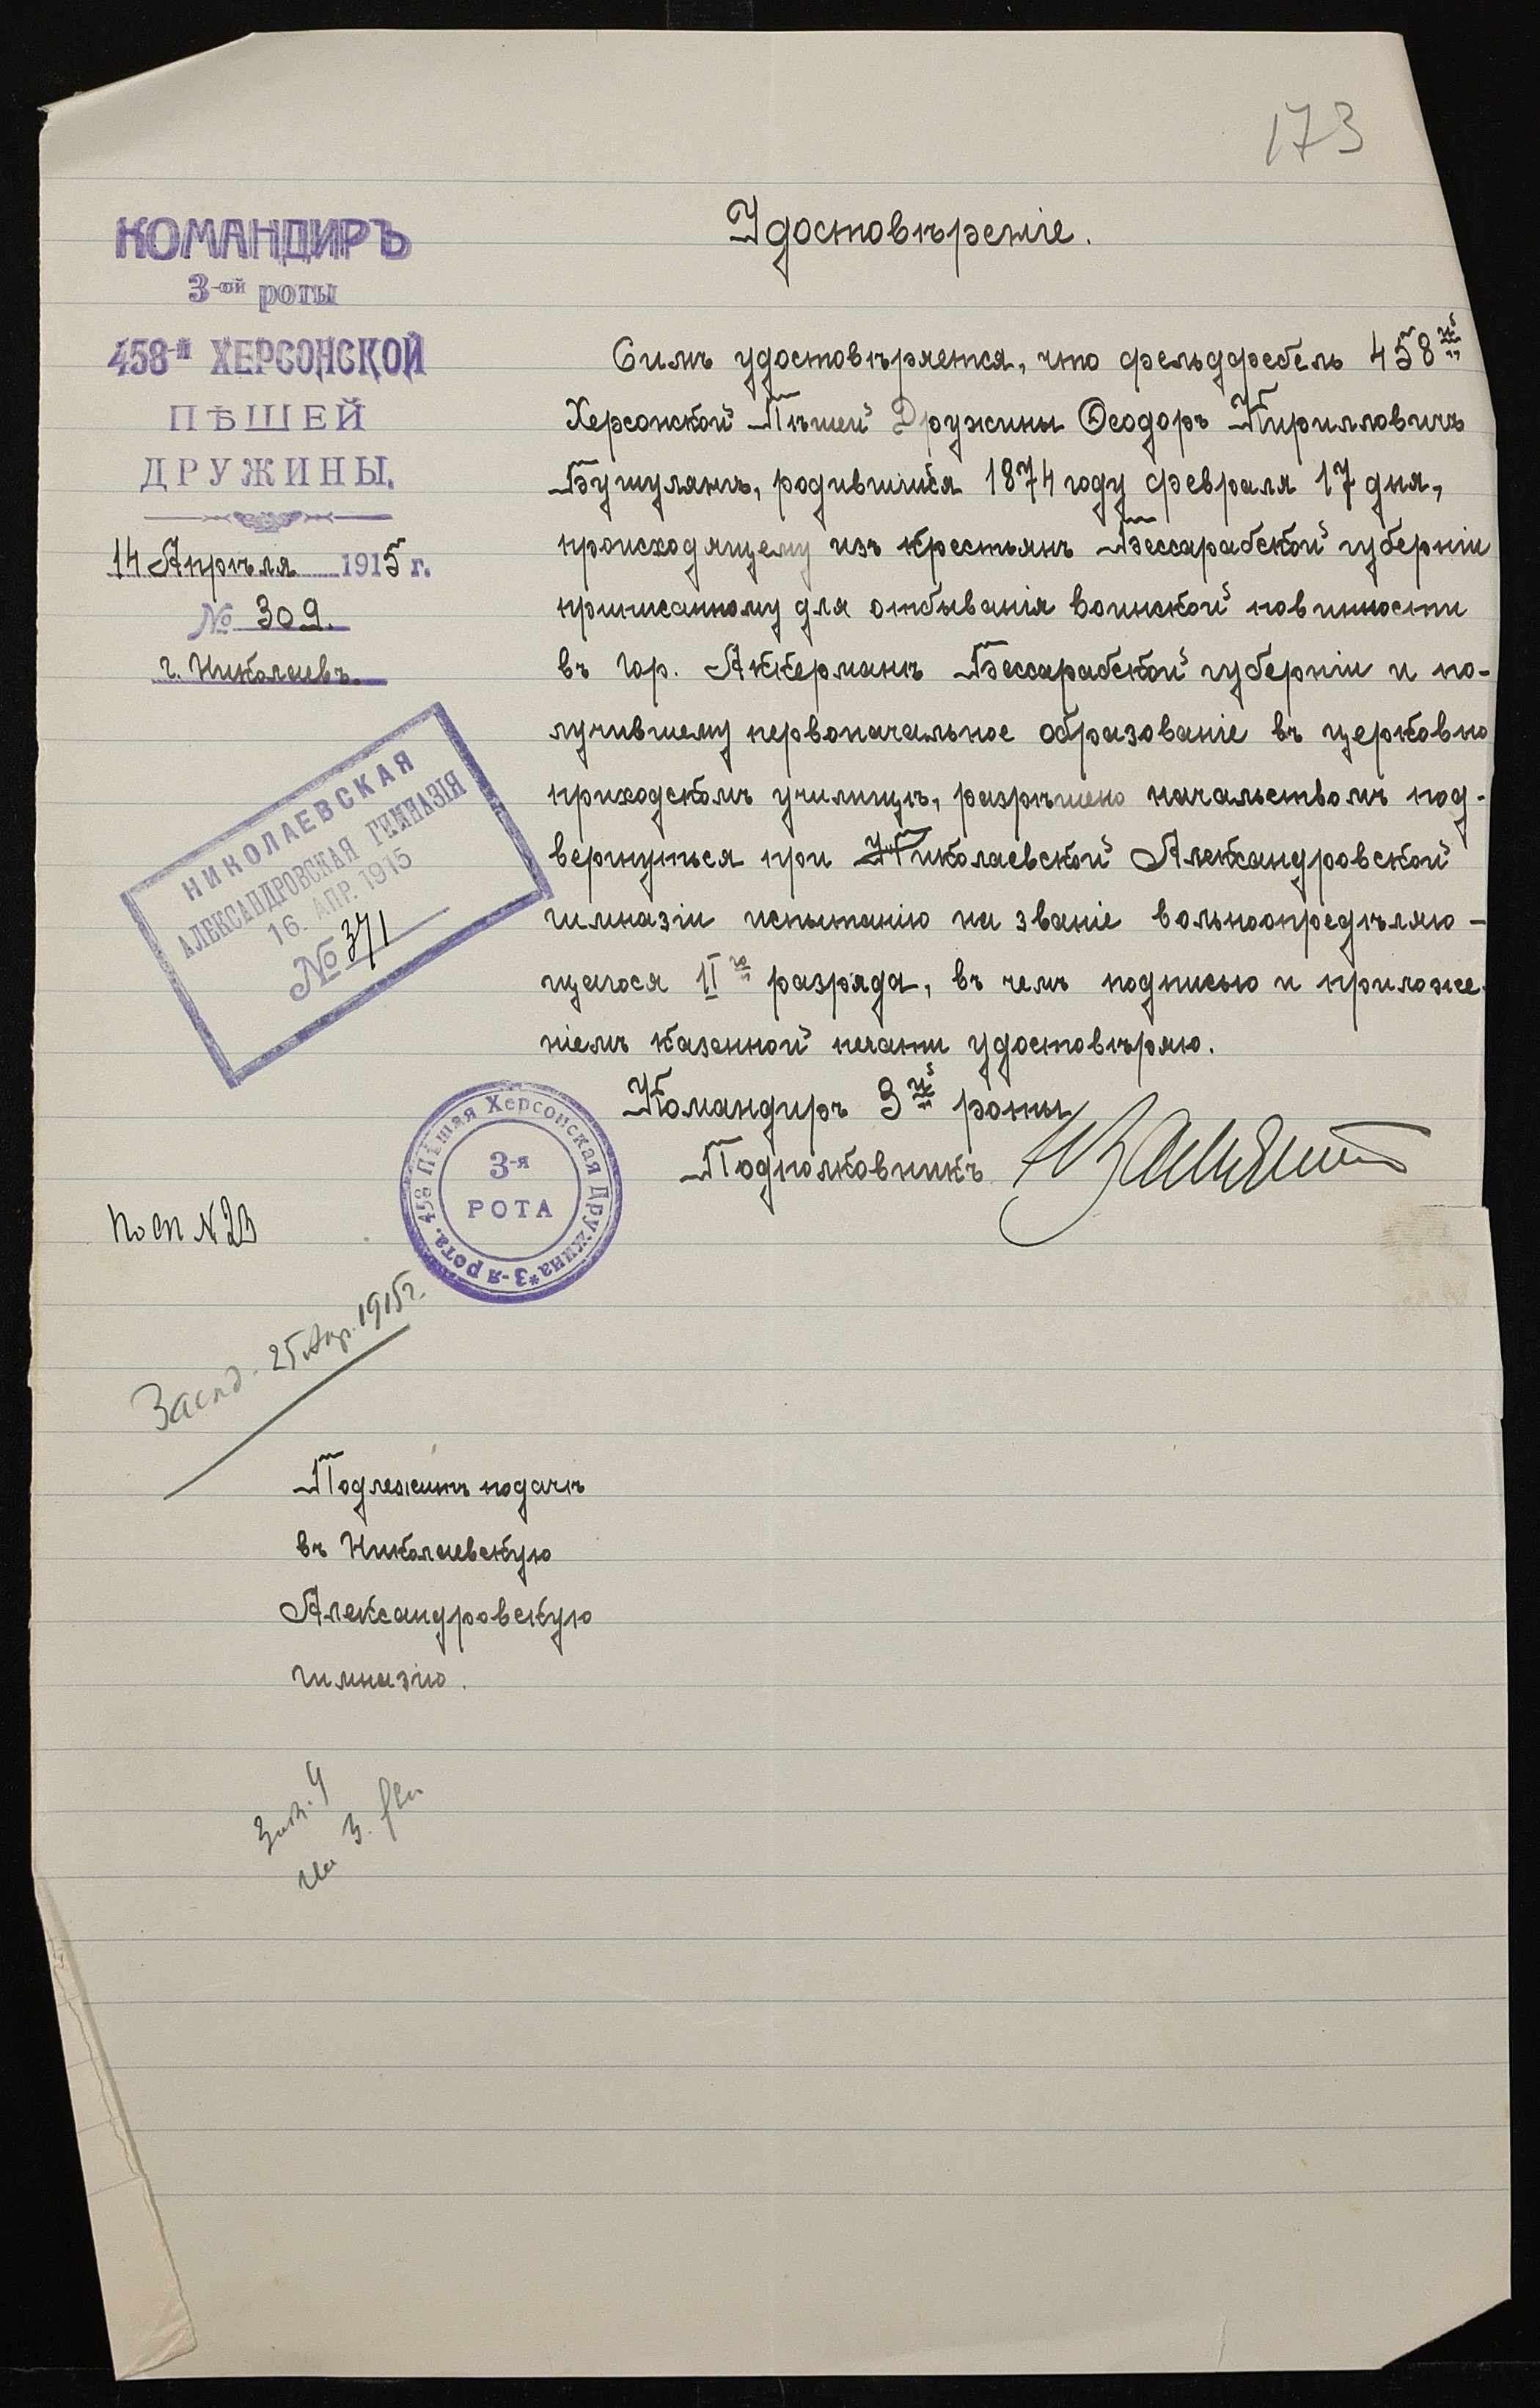 173
КОМАНДИРЪ
3-ой роты
458-й ХЕРСОНСКОЙ
ПѢШЕЙ
ДРУЖИНЫ.
14 Апрѣля 1915 г.
№ 309.
г. Николаевъ.
Удостовѣреніе.
Симъ удостовѣряется, что фельдфебель 458й
Херсонской Пѣшей Дружины Ѳеодоръ Кирилловичъ
Бушулянъ, родившійся 1874 году февраля 17 дня,
происходящему изъ крестьянъ Бессарабской губерніи
приписанному для отбыванія воинской повинности
въ гор. Аккерманъ Бессарабской губерніи и по-
лучившему первоначальное образованіе въ церковно
приходскомъ училищѣ, разрѣшено начальствомъ под-
вергнуться при Николаевской Александровской
гимназіи испытанію на званіе вольноопредѣляю-
щагося II го разряда, въ чемъ подписью и приложе-
ніемъ казенной печати удостовѣряю.
Командиръ 3й роты
Подполковникъ
НИКОЛАЕВСКАЯ
АЛЕКСАНДРОВСКАЯ ГИМНАЗІЯ
16. АПР. 1915
№ 371
458 Пѣшая Херсонская Дружина * 3-я рота.
3-я
РОТА
По сп № 23
Засѣд. 25 Апр. 1915 г.
Подлежитъ подачѣ
въ Николаевскую
Александровскую
гимназію.